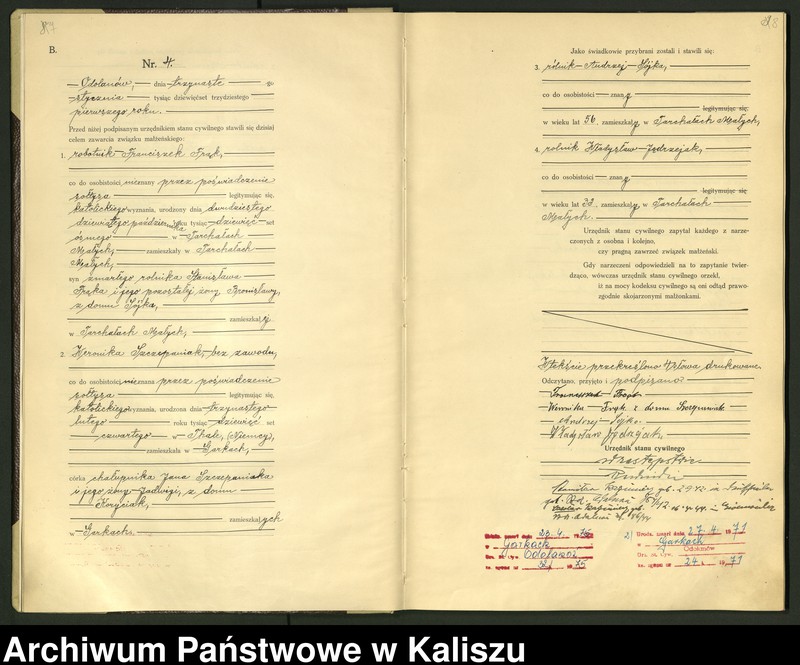 B.
Nr. 4.
Odolanów, dnia trzynaste
stycznia tysiąc dziewięćset trzydziestego
pierwszego roku.
Przed niżej podpisanym urzędnikiem stanu cywilnego stawili się dzisiaj
celem zawarcia związku małżeńskiego:
1. robotnik Franciszek
co do osobistości nieznany przez poświadczenie
sołtysa legitymując się,
katolickiego wyznania, urodzony dnia dwudziestego
dziewiątego października roku tysiąc dziewięć set
ósmego w Tarchałach
Małych, zamieszkały w Tarchałach
Małych,
syn zmarłego rolnika Stanisława
i jego pozostałej żony Bronisławy,
z domu Sójka,
zamieszkałej
w Tarchałach Małych,
2. Weronika Szczepaniak, bez zawodu,
co do osobistości nieznana przez poświadczenie
sołtysa legitymując się,
katolickiego wyznania, urodzona dnia trzynastego
lutego roku tysiąc dziewięć set
czwartego w Thale, (Niemcy),
zamieszkała w Garkach,
córka chałupnika Jana Szczepaniaka
i jego żony Jadwigi, z domu
zamieszkałych
w Garkach.
Jako świadkowie przybrani zostali i stawili się:
3. rolnik Andrzej Sójka,
co do osobistości znany
legitymując się;
w wieku lat 56, zamieszkały w Tarchałach Małych,
4. rolnik Władysław Jędrzejak,
co do osobistości znany
legitymując się
w wieku lat 32 zamieszkały w Tarchałach
Małych.
Urzędnik stanu cywilnego zapytał każdego z narze-
czonych z osobna i kolejno,
czy pragną zawrzeć związek małżeński.
Gdy narzeczeni odpowiedzieli na to zapytanie twier-
dząco, wówczas urzędnik stanu cywilnego orzekł,
iż na mocy kodeksu cywilnego są oni odtąd prawo-
zgodnie skojarzonymi małżonkami.
W tekście przekreślono 4 słowa drukowane.
Odczytano, przyjęto i podpisano
Weronika z domu Szczepaniak
Andrzej Sójka
Władysław Jędrzejak
Urzędnik stanu cywilnego
w zastępstwie
zmarł dnia 23.4. 1975
w Garkach
Odolanów
32/ 1975
2) zmarł dnia 27.4. 1971
w Garkach
Odolanów
24 1971
Archiwum Państwowe w Kaliszu